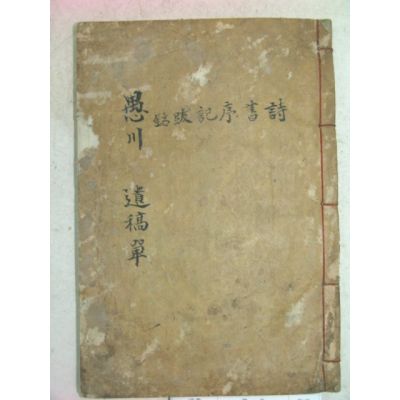 詩書序記跋銘
愚川 遺稿單